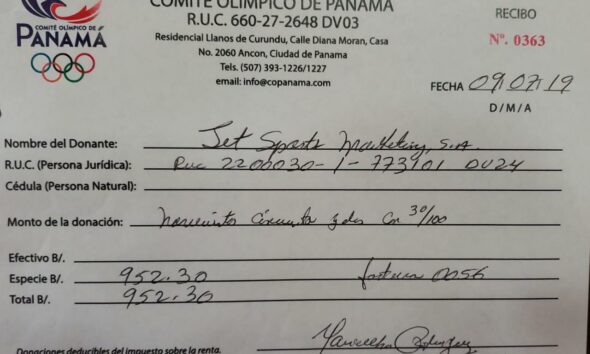 COMITÉ OLÍMPICO DE PANAMÁ
R.U.C. 660-27-2648 DV03
Residencial Llanos de Curundu, Calle Diana Moran, Casa
No. 2060 Ancon, Ciudad de Panama
Tels. (507) 393-1226/1227
email: info@copanama.com
COMITÉ OLÍMPICO DE
PANAMÁ
RECIBO
Nº. 0363
FECHA 09/07/19
D/M/A
Nombre del Donante: Jet Sports Marketing, S.A.
R.U.C. (Persona Jurídica): Ruc 2200030-1-773101 DV24
Cédula (Persona Natural):
Monto de la donación: novecientos cincuenta y dos con 30/100
Efectivo B/.
Especie B/. 952.30 factura 0056
Total B/. 952.30
Donaciones deducibles del impuesto sobre la renta.